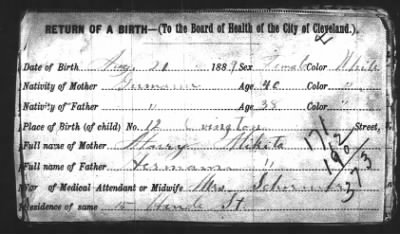 RETURN OF A BIRTH—(To the Board of Health of the City of Cleveland.)
Date of Birth Aug. 20 1889 Sex Female Color White
Nativity of Mother Germann Age 40 Color "
Nativity of Father " Age 38 Color "
Place of Birth (of child) No. 12 Street,
Full name of Mother Mary Mikita
Full name of Father Hermann "
of Medical Attendant or Midwife Mrs.
Residence of same 15 St.
171
190
373